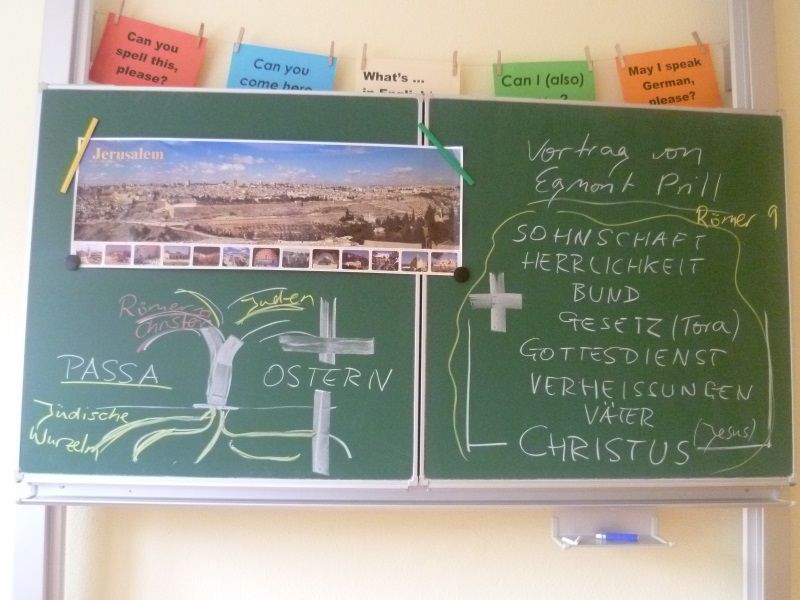 Can you
spell this,
please?
Can you
come here
What's ...
in English
Can I (also)
?
May I speak
German,
please?
Jerusalem
Römer
Christen
Juden
PASSA
OSTERN
Jüdische
Wurzeln
Vortrag von
Egmont Prill
Römer 9
SOHNSCHAFT
HERRLICHKEIT
BUND
GESETZ (Tora)
GOTTESDIENST
VERHEISSUNGEN
VÄTER
CHRISTUS (Jesus)